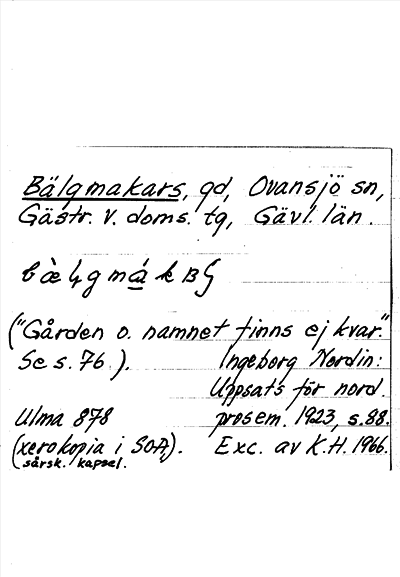 Bälgmakars, gd, Ovansjö sn,
Gästr. V. doms. tg, Gävl. län.
("Gården o. namnet finns ej kvar."
Se s. 76.). Ingeborg Nordin:
Uppsats för nord.
Ulma 878 prosem. 1923, s. 88.
(xerokopia i SOA). Exc. av K.H. 1966.
särsk. kapsel.